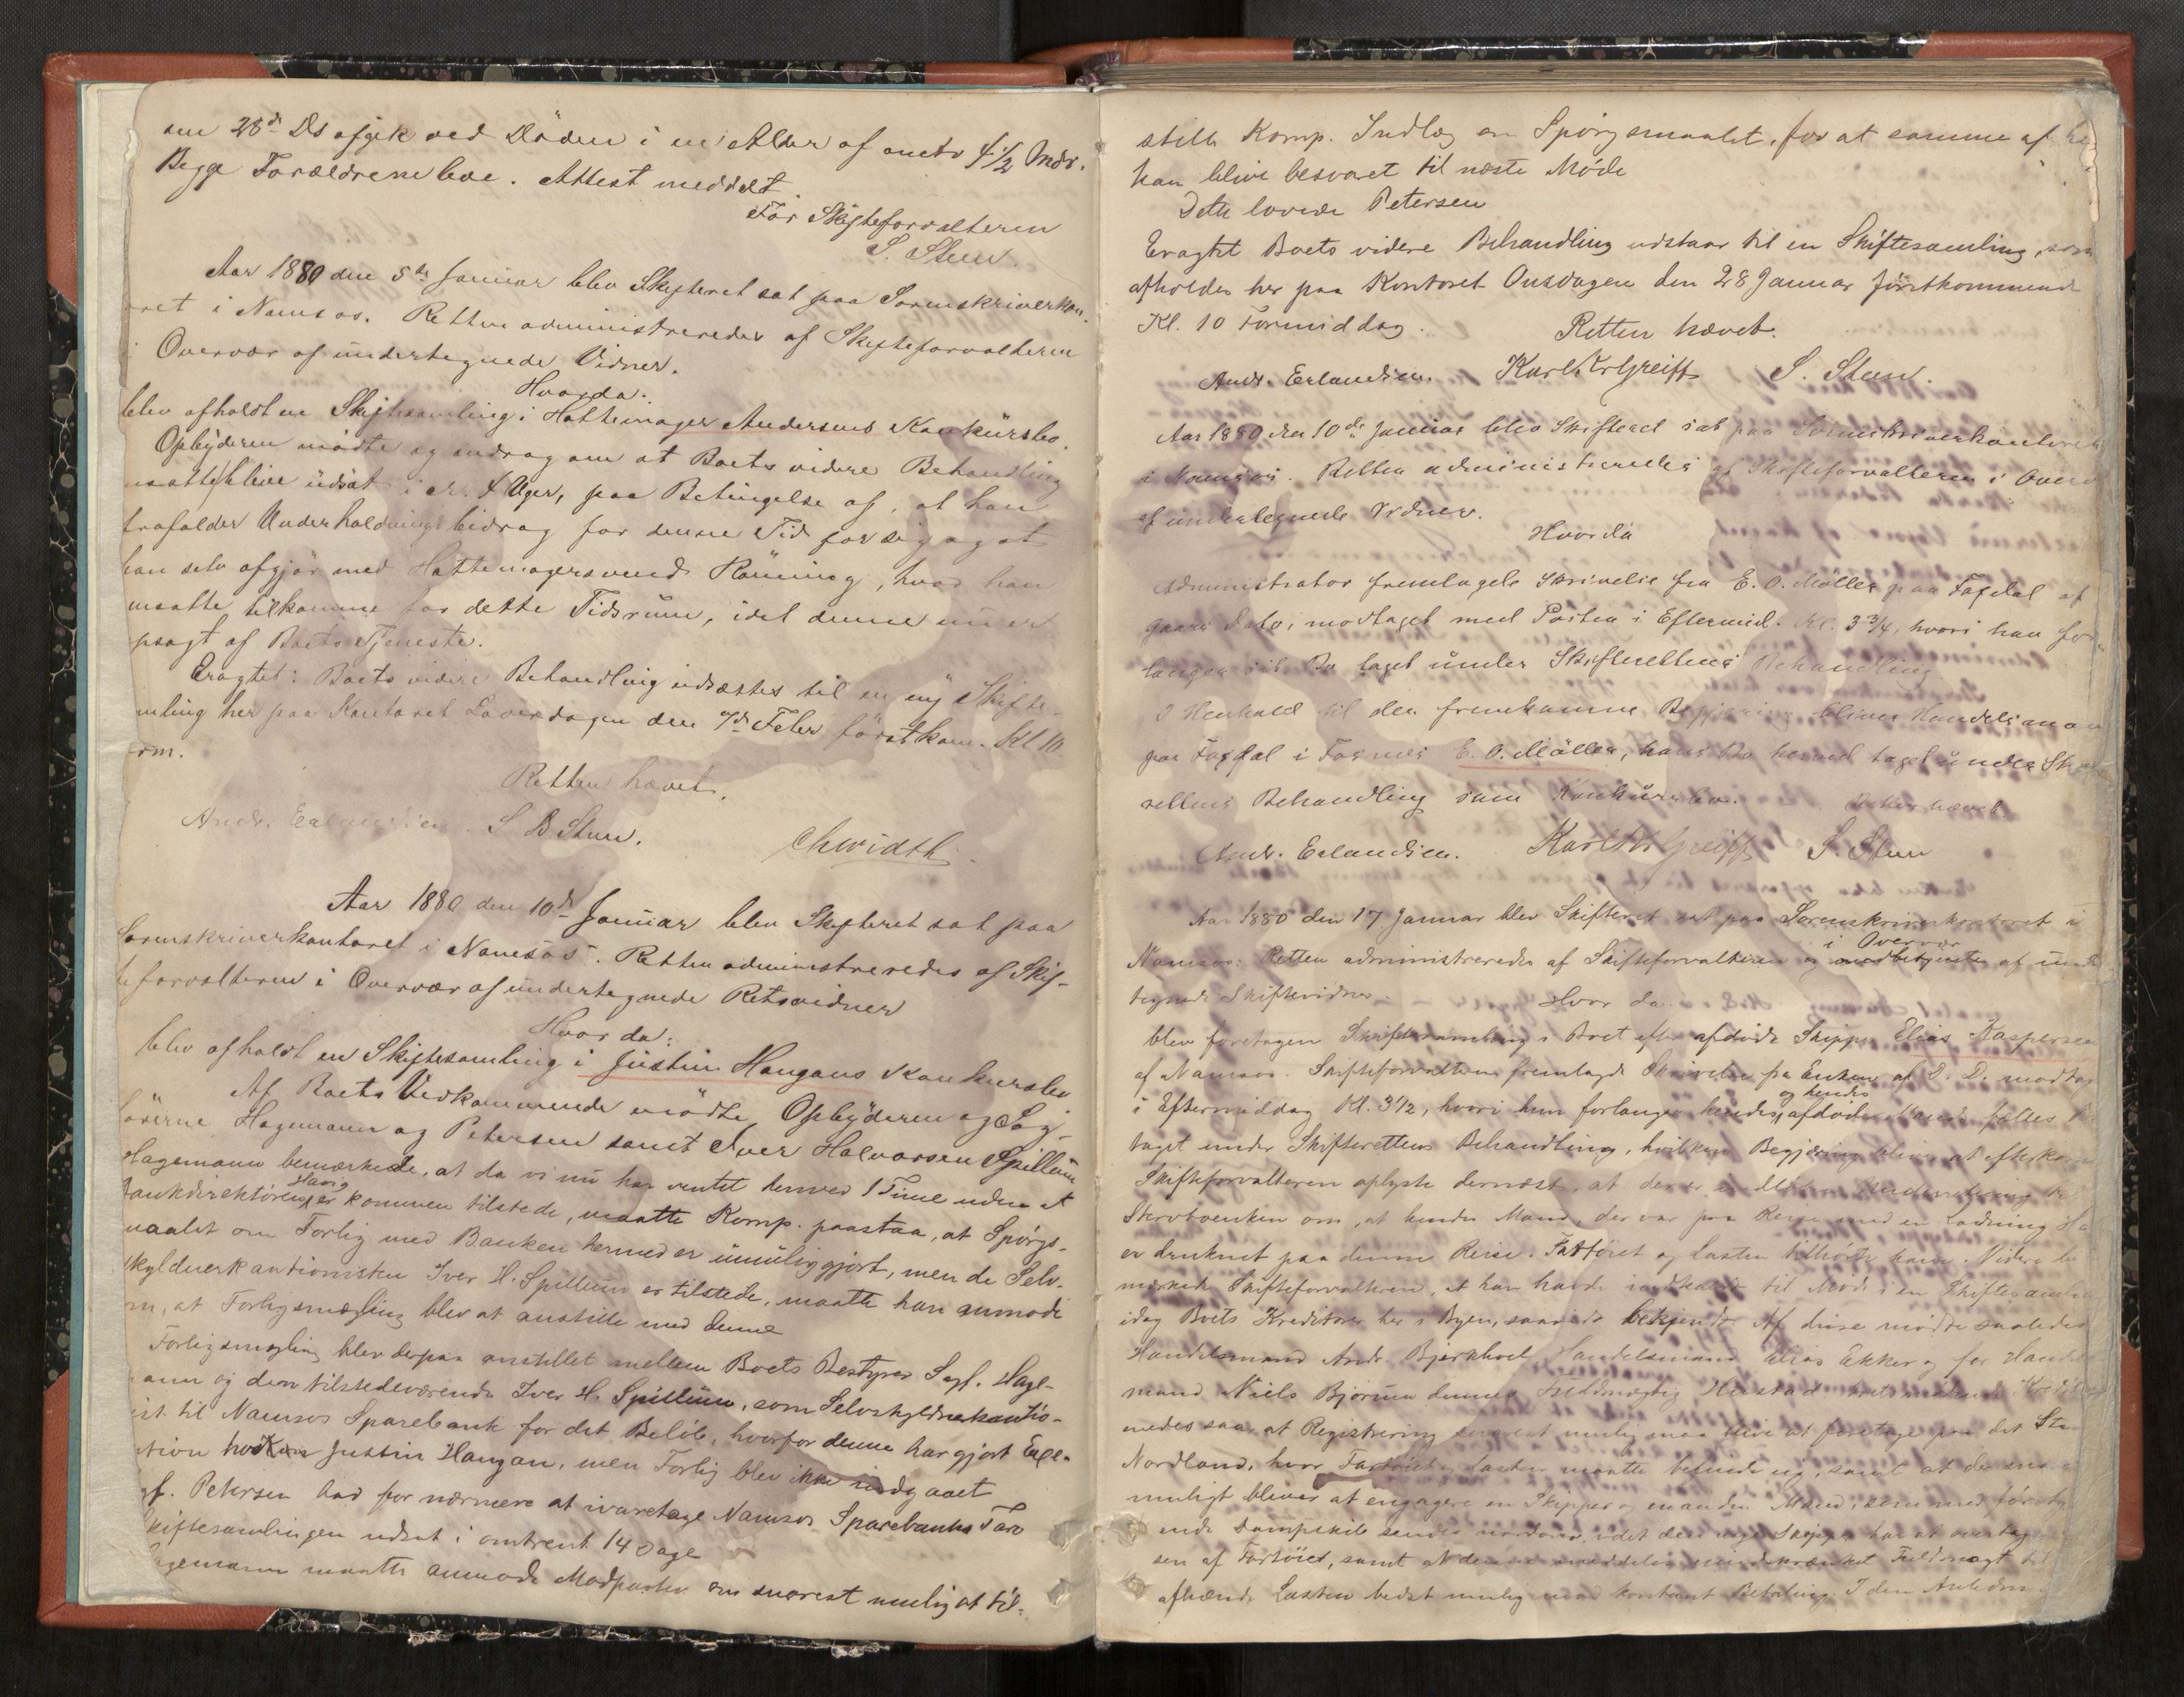 om 28de Ds afgik ved Döden i en Alder af omtr 4 1/2 Mdr.
Begge Forældrene leve. Attest meddelt.
For Skifteforvalteren
S. Steen.
Aar 1880 den 5te Januar blev Skifteret sat paa Sorenskriverkon-
oret i Namsos. Retten administreredes af Skifteforvalteren
i Overvær af undertegnede Vidner.
Hvorda:
blev afholdt en Skiftesamling i Hattemager Andersens Konkursbo.
Opbyderen mødte og androg om at Boets videre Behandling
maatte blive udsat i ca. 4 Uger, paa Betingelse af, at han
frafalder Underholdningsbidrag for denne Tid for sig og at
han selv afgjør med Hattemagersvend Rönning, hvad han
maatte tilkomme for dette Tidsrum, idet denne nu er
opsagt af Boets Tjeneste.
Eragtet: Boets videre Behandling udsættes til en ny Skifte-
samling her paa Kontoret Löverdagen den 7de Febr förstkom. Kl 10
Form.
Retten hævet.
Andr. Erlandsen. S B Steen.
Aar 1880 den 10de Januar blev Skifteret sat paa
Sorenskriverkontoret i Namsos. Retten administreredes af Skif-
teforvalteren i Overvær af undertegnede Retsvidner
Hvor da:
blev afholdt en Skiftesamling i Justin Haugans Konkursbo
Af Boets Vedkommende mödte Opbyderen og Sag-
förerne Hagemann og Petersen samt Iver Halvorsen Spillum
Hagemann bemærkede, at da vi nu har ventet henved 1 Time uden at
Bankdirektören Haug er kommen tilstede, maatte Komp. paastaa, at Spörgs-
maalet om Forlig med Banken hermed er umuliggjort, men da Selv-
skyldnerkautionisten Iver H. Spillum er tilstede, maatte han anmode
om, at Forligsmægling blev at anstille med denne
Forligsmægling blev derpaa anstillet mellem Boets Bestyrer Sagf. Hage-
mann og den tilstedeværende Iver H. Spillum, som Selvskyldnerkautio-
nist til Namsos Sparebank for det Belöb, hvorfor denne har gjort Exe-
kution hos Justin Haugan, men Forlig blev ikke indgaaet
Sagf. Petersen bad for nærmere at ivaretage Namsos Sparebanks Tarv
Skiftesamlingen udsat i omtrent 14 Dage
Hagemann maatte anmode Modparten om snarest mulig at til-
stille Komp. Indlæg om Spörgsmaalet, for at samme af
kan blive besvaret til næste Möde
Dette lovede Petersen
Eragtet Boets videre Behandling udstaar til en Skiftesamling, som
afholdes her paa Kontoret Onsdagen den 28 Januar förstkommende
Kl. 10 Formiddag.
Retten hævet.
Andr. Erlandsen. Karl Kr Greiff S. Steen.
Aar 1880 den 10de Januar blev Skifteret sat paa Sorenskriverkontoret
i Namsos. Retten administreredes af Skifteforvalteren i Overvær
af undertegnede Vidner.
Hvorda
Administrator fremlagde Skrivelse fra E. O. Möller paa Fagdal af
Gaars Dato, modtaget med Posten i Eftermid. Kl. 3 3/4, hvori han for-
langer sit Bo taget under Skifterettens Behandling
I Henhold til den fremkomne Begjæring bliver Handelsmand
paa Fagdal i Fosnes E. O. Möller, hans Bo herved taget under Skifte-
rettens Behandling som Konkursbo. Retten hævet
Andr. Erlandsen. Karl Kr Greiff S. Steen
Aar 1880 den 17 Januar blev Skifteret sat paa Sorenskriverkontoret i
Namsos: Retten administreredes af Skifteforvalteren i Overvær af under-
tegnede Skiftevidner
Hvor da
blev foretagen Skiftesamling i Boet efter afdöde Skipper Elias Kaspersen
af Namsos. Skifteforvalteren fremlagde Skrivelse fra Enken af D. D. modtag
i Eftermiddag Kl. 3 1/2, hvori hun forlanger hendes og hendes afdöde Mands fælles
taget under Skifterettens Behandling, hvilken Begjæring bliver at efterkomme
Skifteforvalteren oplyste dernæst, at der er
Stervboenken om, at hendes Mand, der var paa Reise med en Ladning
er druknet paa denne Reise. Fartöiet og Lasten tilhörte ham. Videre be-
mærkede Skifteforvalteren, at han havde indkaldt til Möde i en Skiftesamling
idag Boets Kreditorer her i Byen, saavidt bekjendt. Af disse mödte saaledes
Handelsmand Andr. Bjerkhoel, Handelsmand Elias Ekker og for Handels-
mand Niels Bjørum dennes Fuldmægtig
enedes saa, at Registrering snarest mulig maa blive at foretage paa det Sted
Nordland, hvor Fartöiet og Lasten maatte befinde sig, samt at der
muligt bliver at engagere en Skipper og en anden Mand, som med först
ende Dampskib sendes nordover, idet den nye Skipper har at overtage
sen af Fartöiet, samt at denne meddeles uindskrænket Fuldmagt til
afhænde Lasten bedst mulig mod kontant Betaling. I den Anledning